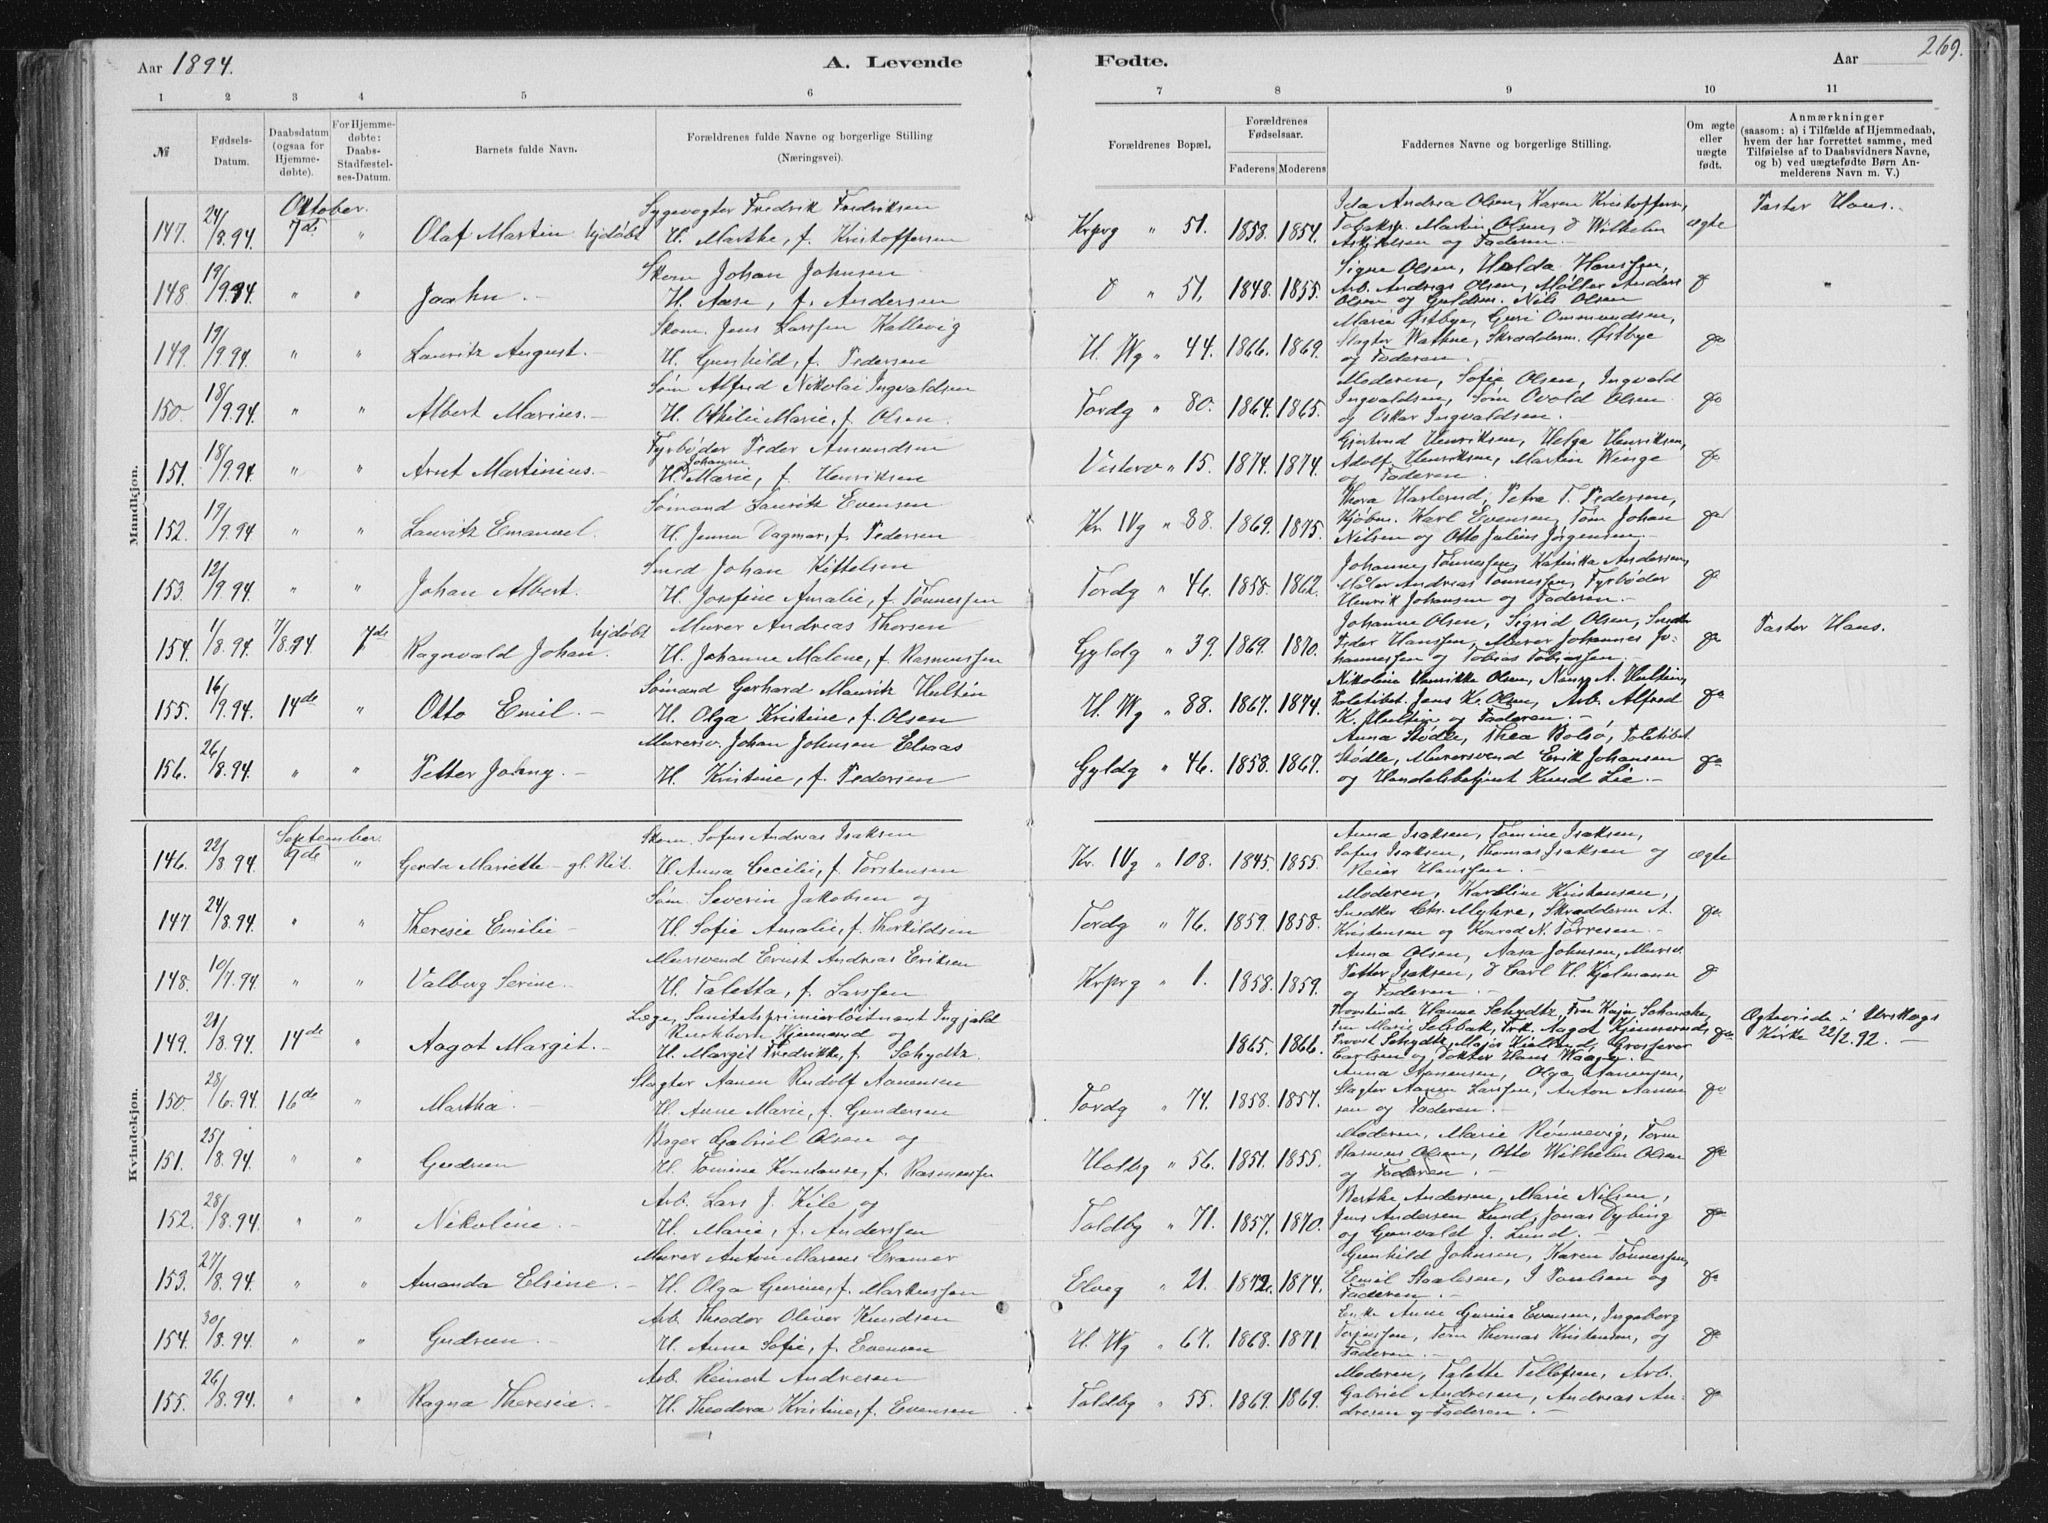 Aar 1894.
A. Levende
Fødte.
Aar
269.
1 2 3 4 5 6 7 8 9 10 11
№
Fødsels-
Datum.
Daabsdatum
(ogsaa for
Hjemme-
døbte).
For Hjemme-
døbte:
Daabs-
Stadfæstel-
ses-Datum.
Barnets fulde Navn.
Forældrenes fulde Navne og borgerlige Stilling
(Næringsvei).
Forældrenes Bopæl.
Forældrenes
Fødselsaar.
Faderens Moderens
Faddernes Navne og borgerlige Stilling.
Om ægte
eller
uægte
født.
Anmærkninger
(saasom: a) i Tilfælde af Hjemmedaab,
hvem der har forrettet samme, med
Tilføielse af to Daabsvidners Navne,
og b) ved uægtefødte Børn An-
melderens Navn m. V.)
Mandkjøn.
Oktober.
147. 24/8.94. 7de " Olaf Martin hjdøbt
Sygevogter Fredrik Fredriksen
H. Marthe, f. Kristoffersen
Krprg " 51. 1858. 1854.
Ida Andrea Olsen, Karen Kristoffersen,
Martin Olsen, d Wilhelm
og Faderen.-
ægte
Pastor Hans.
148. 19/9.94. " " Jaahn.-
Skom Johan Johnsen
H. Aase, f. Andersen
d " 51. 1848. 1855.
Signe Olsen, Hulda Hanssen,
Arb. Andreas Olsen, Møller Anders
Olsen og Guldsm. Nils Olsen
d "
149. 19/9.94. " " Lauritz August.-
Skom. Jens Larssen Kallevig
H. Gunhild, f. Pedersen
H. Wg " 44. 1866. 1869.
Marie Østbye, Guri Ommundsen,
Slagter Wathne, Skrædderm. Østbye
og Faderen.-
do
150. 18/9.94. " " Albert Marius.-
Søm Alfred Nikolai Ingvaldsen
H. Othilie Marie, f. Olsen.
Tordg " 80. 1864. 1865.
Moderen, Sofie Olsen, Ingvald
Ingvaldsen, Søm Ovold Olsen
og Oskar Ingvaldsen.
do
151. 18/9.94. " " Arnt Martinius.-
Fyrbøder Peder Amundsen
Johanne
H. Marie, f. Henriksen
Vesterv " 15. 1874. 1874.
Gjertrud Henriksen, Helga Henriksen,
Adolf Henriksen, Martin Winge
og Faderen.
do
152. 19/9.94. " " Lauritz Emanuel.
Sømand Lauritz Evensen
H. Jenny Dagmar, f. Pedersen
Kr. IVg " 88. 1869. 1875.
Thora Harlerud, Petra T. Pedersen,
Kjøbm. Karl Evensen, Tom Johan
Nilsen og Otto Julius Jørgensen.-
do
153. 12/9.94. " " Johan Albert.
Smed Johan Kittelsen
H. Josefine Amalie, f. Tønnessen
Tordg " 46. 1858. 1862.
Johanne Tønnessen, Katinka Andersen,
Maler Andreas Tønnessen, Fyrbøder
Henrik Johansen og Faderen.-
do
154. 1/8.94. 7/8.94 7de Ragnvald Johan. hjdøbt
Murer Andreas Thorsen
H. Johanne Malene, f. Rasmussen
Gyldg " 39. 1869. 1870.
Johanne Olsen, Sigrid Olsen, Snedker
Peder Hanssen, Murer Johannes Jo-
hannessen og Tobias Tobiassen.-
do
Pastor Hans.
155. 16/9.94. 14de " Otto Emil.-
Sømand Gerhard Mauritz Hultin
H. Olga Kristine, f. Olsen
H. Wg " 88. 1867. 1874.
Nikoline Henrikke Olsen, Nanny A. Hultin,
Politibet. Jens K. Olsen, Arb. Alfred
K. Hultin og Faderen.-
do
156. 26/8.94. " " Petter Johny.-
Murersv. Johan Johnsen Elsaas
H. Kristine, f. Pedersen
Gyldg " 46. 1858. 1867.
Anna Stødle, Thea Bolsø, Politibet.
Stødle, Murersvend Erik Johansen
og Handelsbetjent Knud Lie.-
do
Kvindekjøn.
September.
146. 22/8.94. 9de " Gerda Mariette - gl. Rit.
Skom. Sofus Andreas Isaksen
H. Anna Cecilie, f. Torstensen
Kr. IVg " 108. 1845. 1855.
Anna Isaksen, Tomine Isaksen,
Sofus Isaksen, Thomas Isaksen og
Reier Hanssen.
ægte
147. 24/8.94. " " Theresie Emilie-
Søm. Severin Jakobsen og
H. Sofie Amalie, f. Thorkildsen
Tordg " 76. 1859. 1858.
Moderen, Karoline Kristensen,
Snedker Chr. Myhre, Skrædderm A.
Kristensen og Konrad N. Torresen.-
do
148. 10/7.94. " " Valborg Serine.-
Mursvend Ernst Andreas Eriksen
H. Taletta, f. Larssen
Krprg " 1. 1858. 1859.
Anna Olsen, Aasa Johnsen, Mursv.
Petter Isaksen, d Carl H. Hjelmann
og Faderen.-
d
149. 21/8.94. 14de " Aagot Margit.-
Læge, Sanitetspremierløitnant Ingjald
Reichborn Kjennerud og
H. Margit Fredrikke, f. Schydtz.
1865. 1866.
Provstinde Hanne Schydtz, Fru Kaja Schancke,
Fru Marie Selsbak, Frk. Aagot Kjennerud,
Provst Schydtz, Major Kielland, Grosserer
Carlsen og Doktor Hans Waage.
do
Ægteviede i Urskogs
Kirke 22/2.92.-
150. 28/6.94. 16de " Martha.-
Slagter Aanen Rudolf Aanensen
H. Anne Marie, f. Gundersen
Tordg " 74. 1858. 1857.
Anna Aanensen, Olga Aanensen,
Slagter Aanen Larssen, Anton Aanen-
sen og Faderen.-
do
151. 25/8.94. " " Gudrun
Bager Gabriel Olsen og
H. Tomine Konstanse, f. Rasmussen
Holbg " 56. 1851. 1855.
Moderen, Marie Rønnevig, Tom
Rasmus Olsen, Otto Wilhelm Olsen
og Faderen.-
do
152. 28/8.94. " " Nikoline.-
Arb. Lars J. Kile og
H. Marie, f. Anderssen
Toldbg " 71. 1857. 1870.
Berthe Andersen, Marie Nilsen,
Jens Andersen Lund, Jonas Dybing
og Gunvald J. Lund.-
do
153. 27/8.94. " " Amanda Elsine.-
Murer Anton Marius Cramer
H. Olga Gurine, f. Markussen
Elveg " 21. 1872. 1874.
Gunhild Johnsen, Karen Tønnessen,
Emil Staalesen, I Paulsen og
Faderen.-
do
154. 30/8.94. " " Gudrun.-
Arb. Theodor Oliver Knudsen
H. Anne Sofie, f. Evensen
H. Wg " 67. 1868. 1871.
Enke Anne Gurine Evensen, Ingeborg
Tom Thomas Kristensen, og
Faderen.-
do
155. 26/8.94. " " Ragna Theresia.-
Arb. Reinert Andresen
H. Theodora Kristine, f. Evensen
Toldbg " 55. 1869. 1869.
Moderen, Talette Tellefsen, Arb.
Gabriel Andresen, Andreas An-
dresen og Faderen.-
do